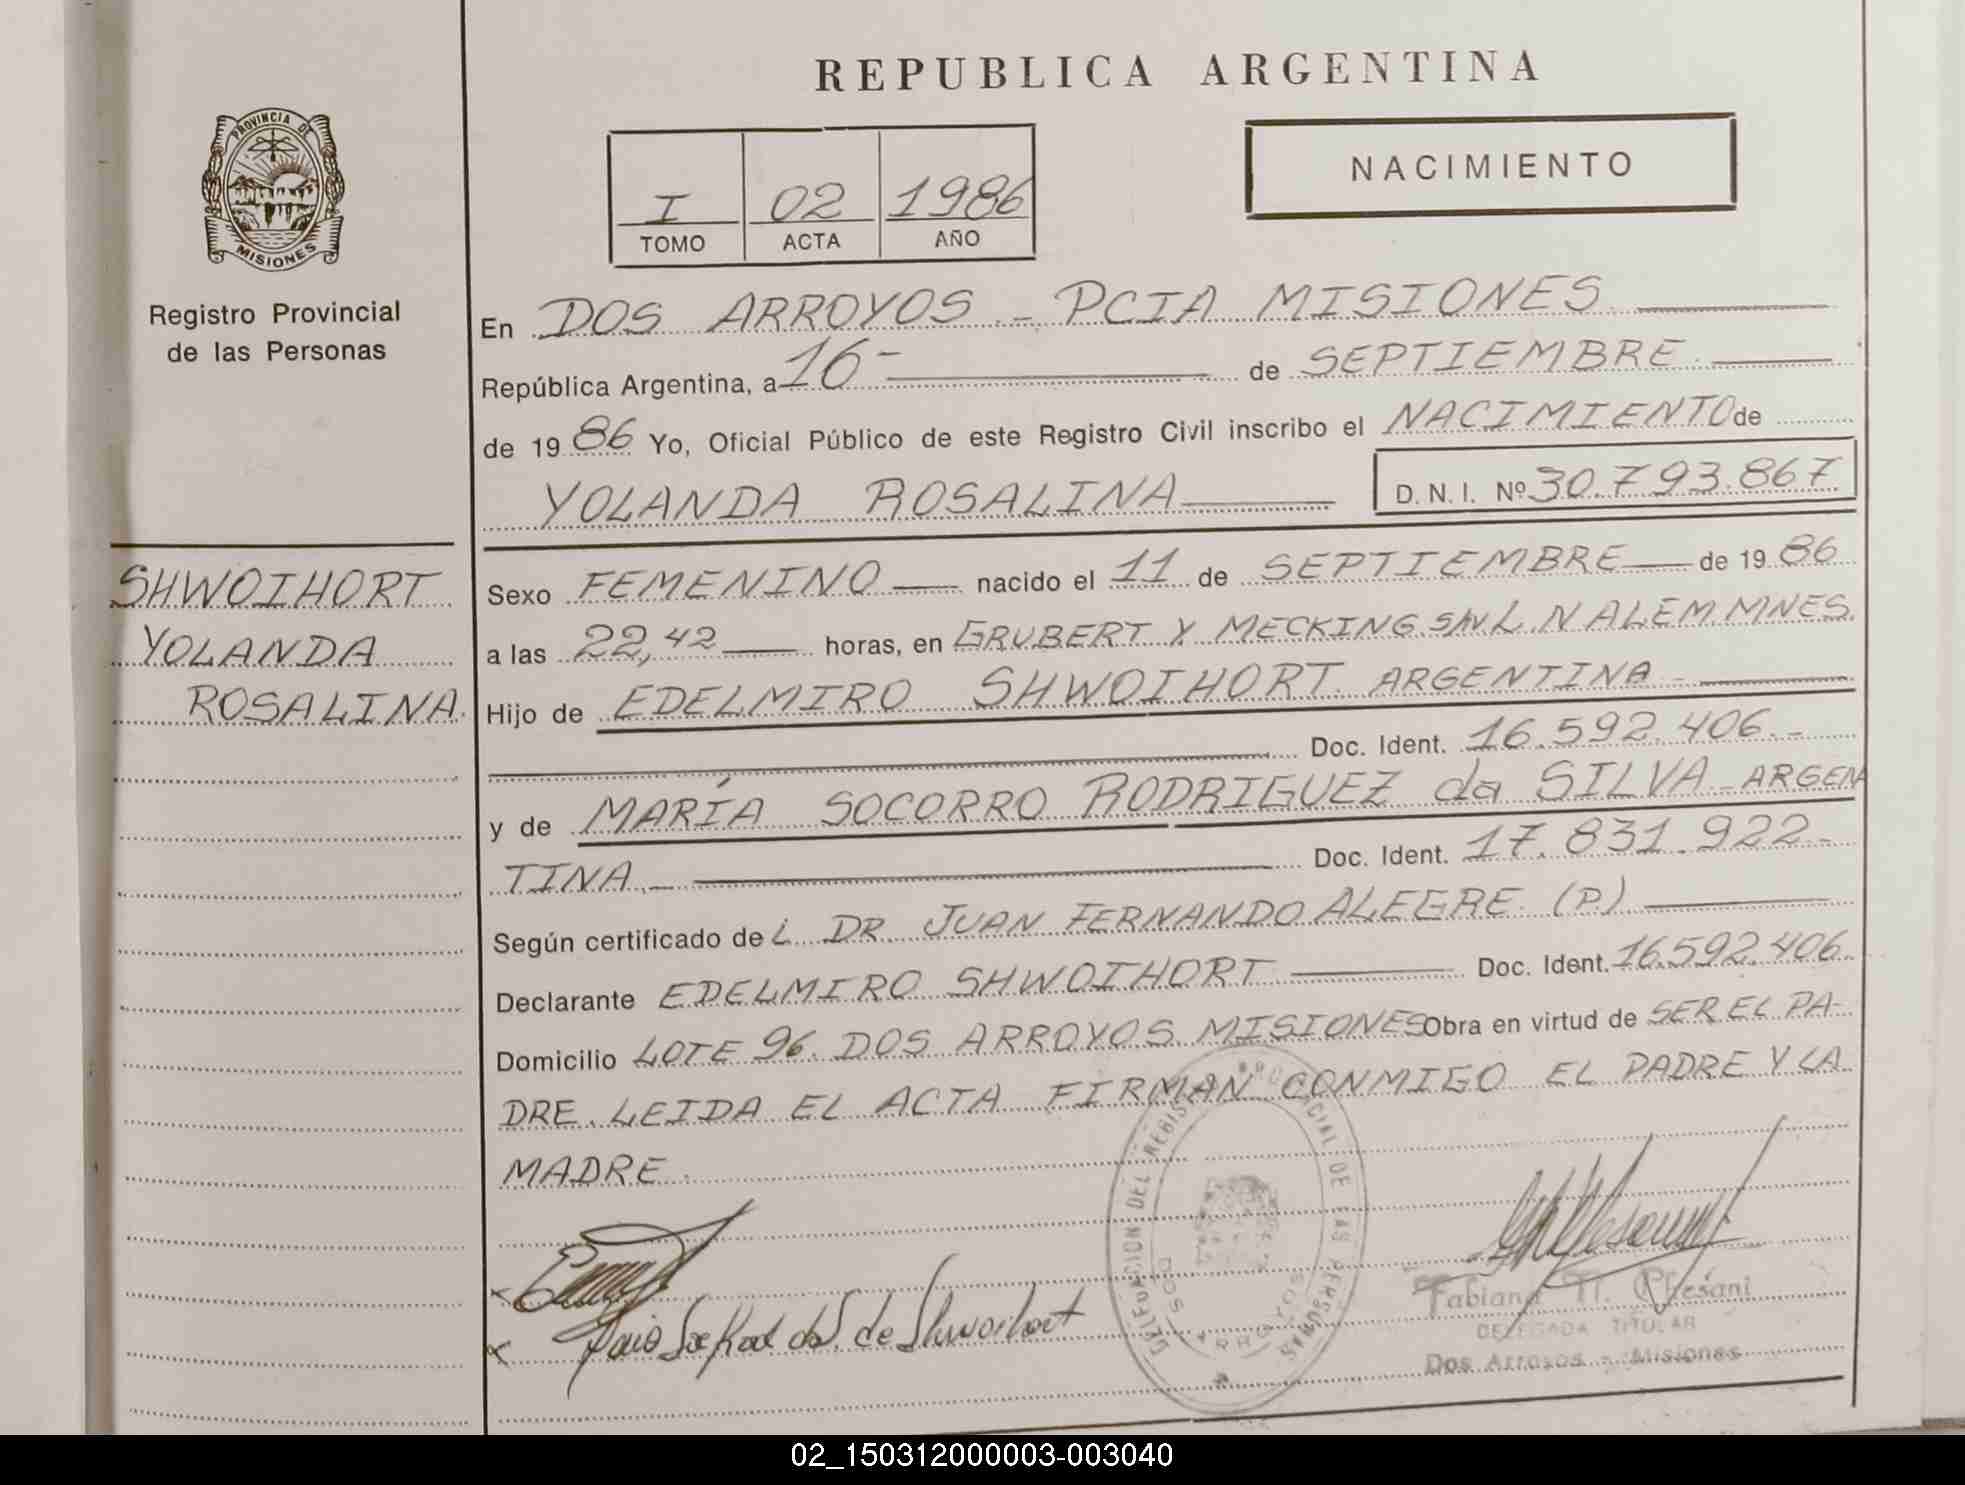 REPUBLICA ARGENTINA
PROVINCIA DE
MISIONES
Registro Provincial
de las Personas
NACIMIENTO
I 02 1986
TOMO ACTA AÑO
En DOS ARROYOS - PCIA MISIONES
República Argentina, a 16 - de SEPTIEMBRE
de 19 86 Yo, Oficial Público de este Registro Civil inscribo el NACIMIENTO de
YOLANDA ROSALINA D.N.I. Nº 30.793.867
SHWOIHORT
YOLANDA
ROSALINA.
Sexo FEMENINO nacido el 11 de SEPTIEMBRE de 19 86
a las 22,42 horas, en GRUBERT Y MECKING S/N L. N ALEM MNES.
Hijo de EDELMIRO SHWOIHORT ARGENTINA -
Doc. Ident. 16.592.406.-
y de MARÍA SOCORRO RODRIGUEZ da SILVA - ARGEN
TINA - Doc. Ident. 17.831.922-
Según certificado de L DR. JUAN FERNANDO ALEGRE (P)
Declarante EDELMIRO SHWOIHORT Doc. Ident. 16.592.406.
Domicilio LOTE 96. DOS ARROYOS MISIONES Obra en virtud de SER EL PA-
DRE. LEIDA EL ACTA FIRMAN CONMIGO EL PADRE Y LA
MADRE.
DELEGACION DEL REGISTRO PROVINCIAL DE LAS PERSONAS
DOS ARROYOS
de Shwoihort
Fabiana
DELEGADA TITULAR
Dos Arroyos - Misiones
02_150312000003-003040